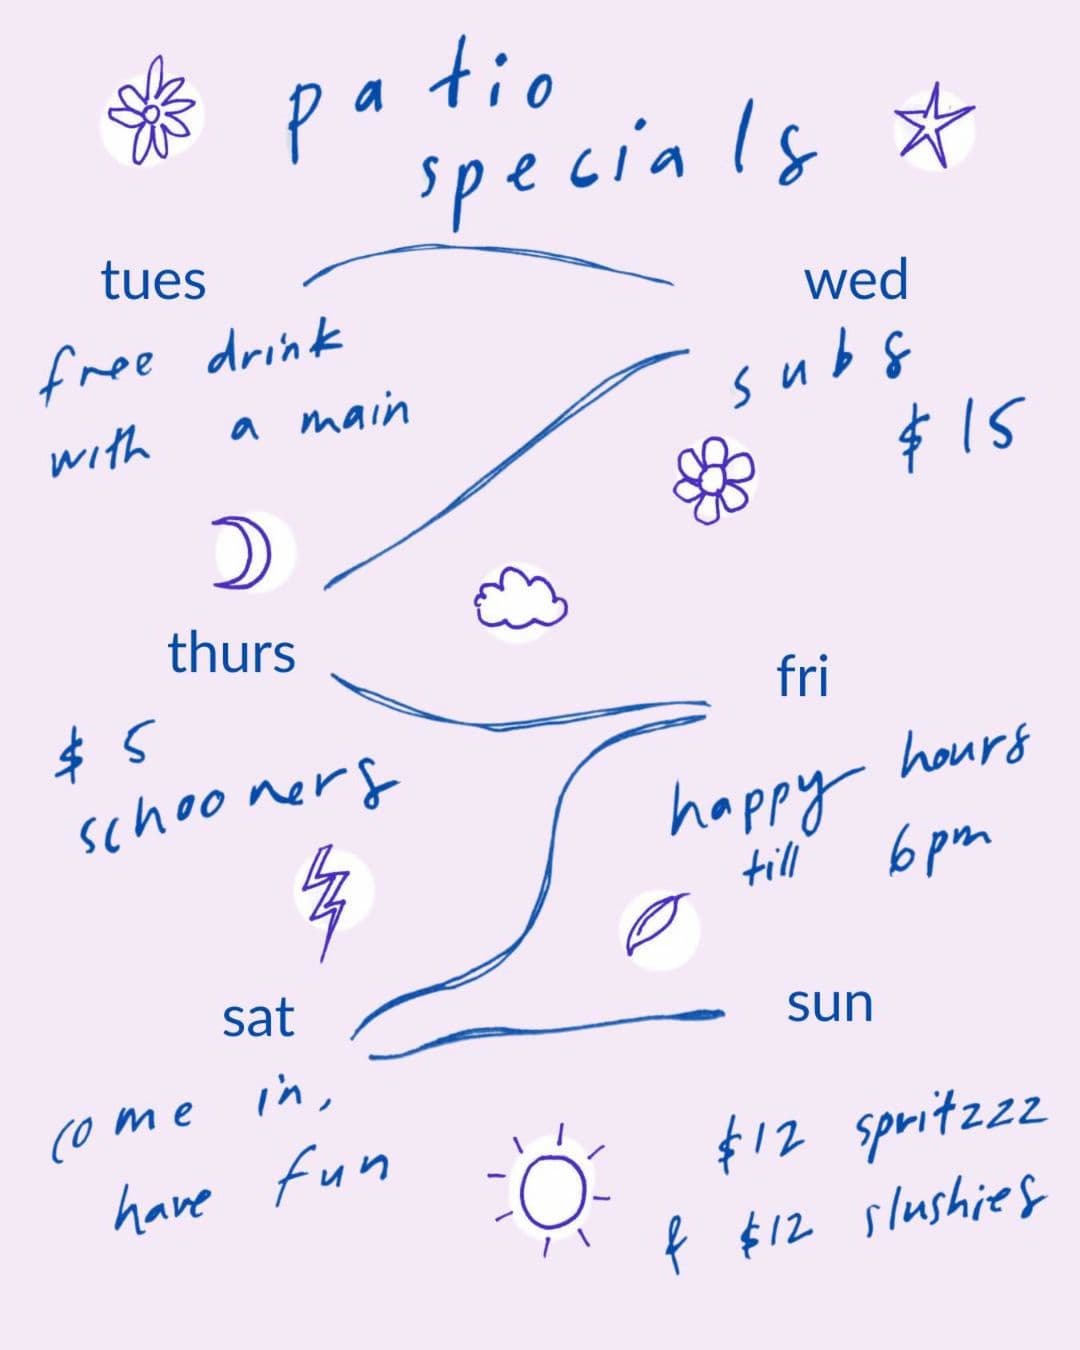 patio
specials
tues
free drink
with a main
wed
subs
$15
thurs
$5
schooners
fri
happy hours
till 6pm
sat
come in,
have fun
sun
$12 spritzzz
& $12 slushies